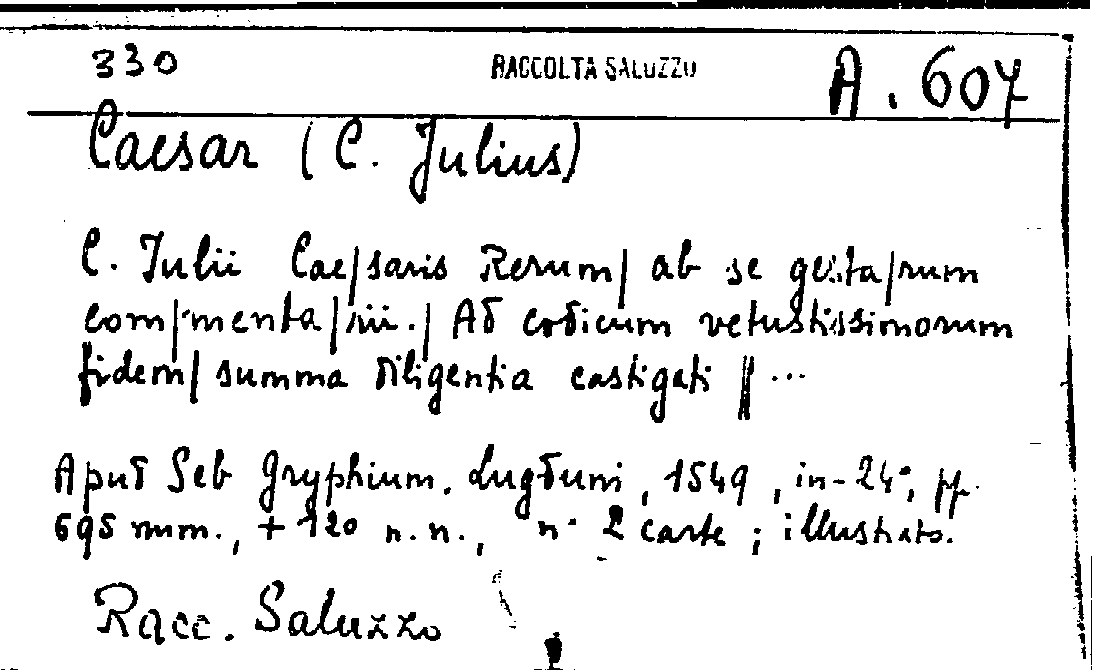 330 RACCOLTA SALUZZO A. 607
Caesar (C. Julius)
C. Iulii Cae/saris Rerum/ ab se gesta/rum
com/menta/rii./ Ad codicum vetustissimorum
fidem/ summa diligentia castigati // ...
Apud Seb Gryphium. Lugduni, 1549, in-24°, pp.
695 num., + 120 n. n., n° 2 carte ; illustrato.
Racc. Saluzzo